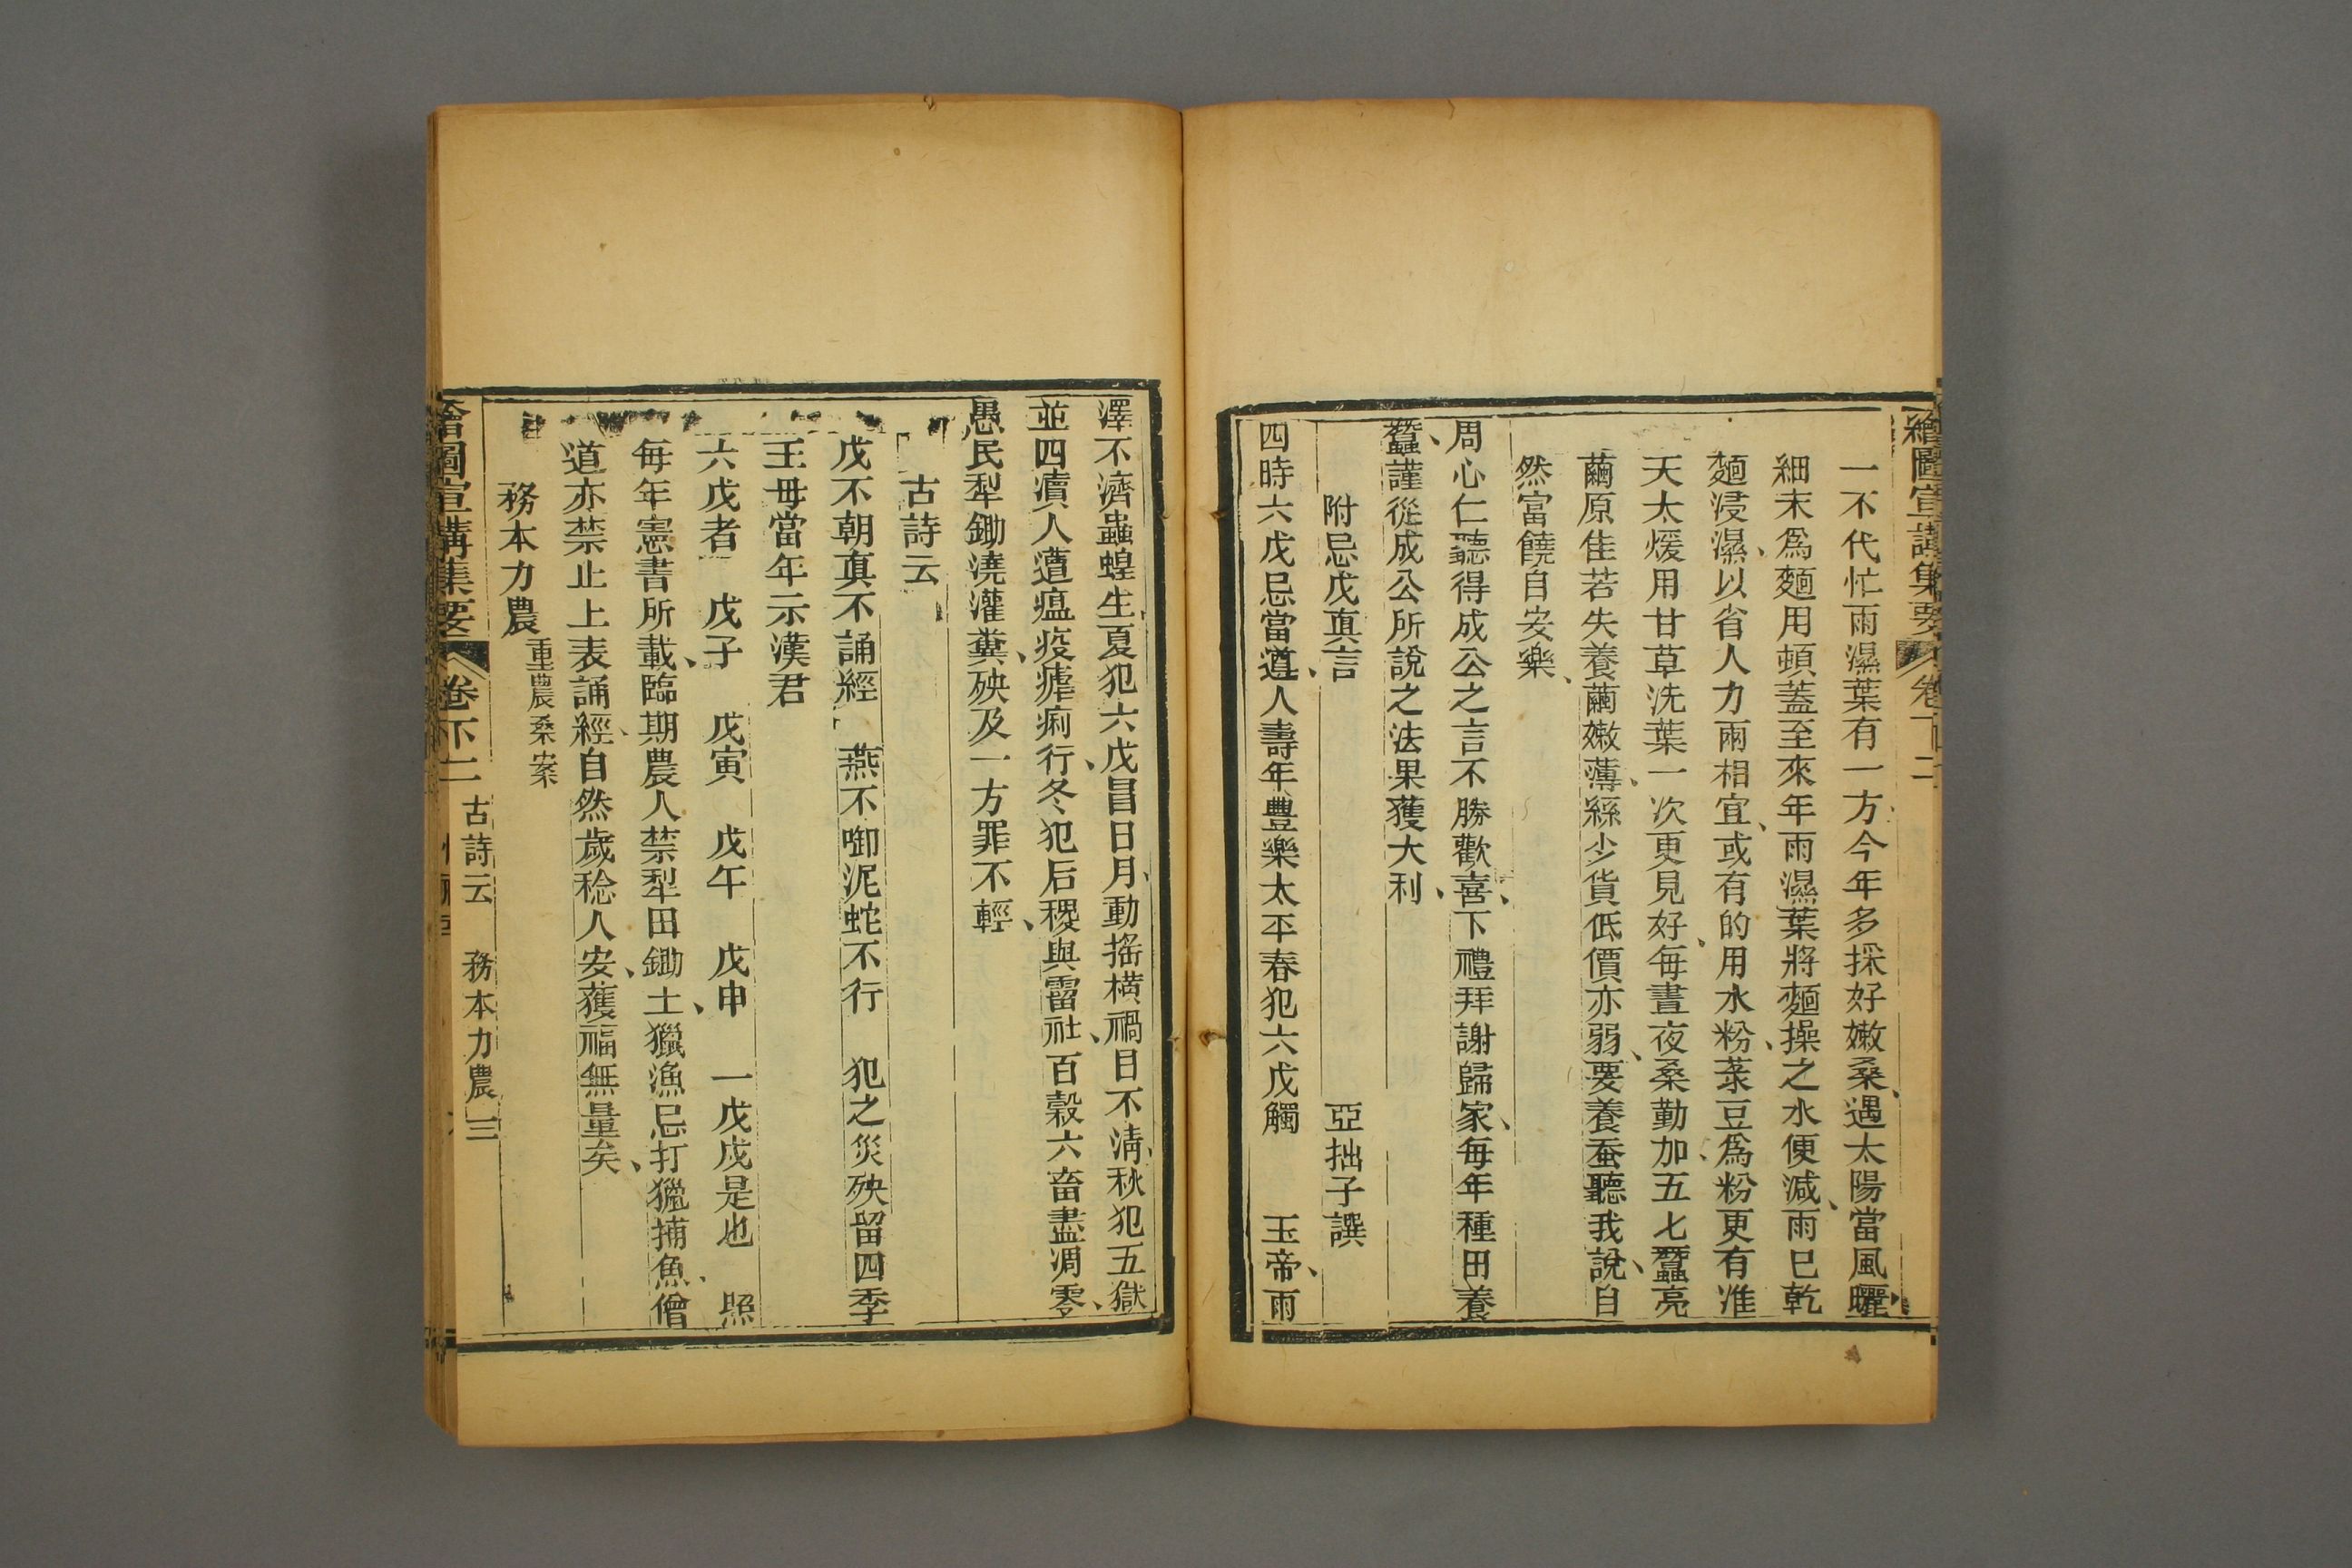 繪圖宣講集要 卷下二
一不代忙雨濕葉有一方今年多採好嫩桑、遇太陽當風曬、
細末為麵用頓蓋至來年雨濕葉將麵操之水便減、雨巳乾
麵浸濕、以省人力兩相宜、或有的用水粉、菉豆為粉更有准
天太煖用甘草洗葉一次更見好、每晝夜桑勤加、五七蠶亮
繭原佳若失養繭嫩薄、絲少貨低價亦弱、要養蚕聽我說、自
然富饒自安樂、
周心仁聽得成公之言不勝歡喜、下禮拜謝歸家、每年種田養
蠶、謹從成公所說之法果獲大利、
附忌戊真言 亞拙子譔
四時六戊忌當遵、人壽年豐樂太平春犯六戊觸 玉帝、雨
澤不濟蟲蝗生、夏犯六戊冒日月、動搖橫禍目不淸、秋犯五獄
並四瀆人遭瘟疫瘧痢行、冬犯后稷與雷社、百穀六畜盡凋零、
愚民犁鋤澆灌糞、殃及一方罪不輕、
古詩云
戊不朝真不誦經 燕不啣泥蛇不行 犯之災殃留四季
王母當年示漢君
六戊者 戊子 戊寅 戊午 戊申 一戊戌是也 照
每年憲書所載、臨期農人禁犁田鋤土、獵漁忌打獵捕魚、僧
道亦禁止上表誦經、自然歲稔人安、獲福無量矣、
務本力農 重農桑案
繪圖宣講集要 卷下二 古詩云 務本力農 三